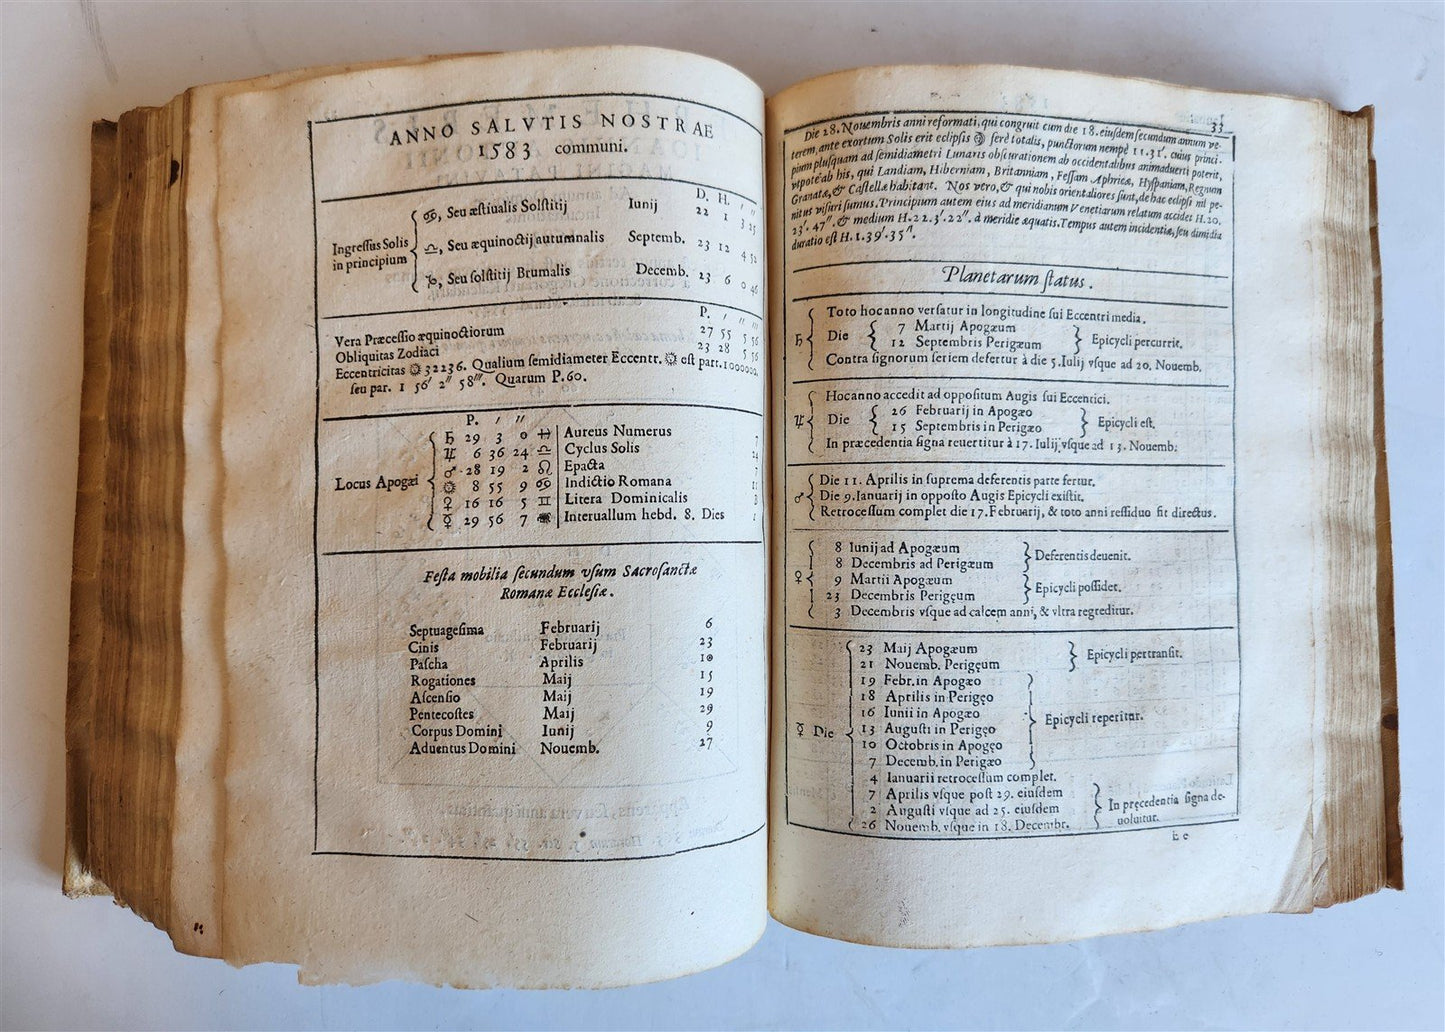 ANNO SALVTIS NOSTRAE
1583 communi.
D. H. ′ ″
Ingressus Solis
in principium
♋, Seu æstiualis Solstitij Iunij 22 1 3 25
♎, Seu æquinoctij autumnalis Septemb. 23 12 4 52
♑, Seu solstitij Brumalis Decemb. 23 6 0 46
P. ′ ″ ‴
Vera Præcessio æquinoctiorum 27 55 5 56
Obliquitas Zodiaci 23 28 5 56
Eccentricitas ☼ 32236. Qualium semidiameter Eccentr. ☼ est part. 1000000.
seu par. 1 56′ 2″ 58‴. Quarum P. 60.
P. ′ ″
Locus Apogæi
♄ 29 3 0 ♐ Aureus Numerus 7
♃ 6 36 24 ♎ Cyclus Solis 24
♂ 28 19 2 ♌ Epacta 7
☼ 8 55 9 ♋ Indictio Romana 11
♀ 16 16 5 ♊ Litera Dominicalis B
☿ 29 56 7 Interuallum hebd. 8. Dies 1
Festa mobilia secundum vsum Sacrosanctæ
Romanæ Ecclesiæ.
Septuagesima Februarij 6
Cinis Februarij 23
Pascha Aprilis 10
Rogationes Maij 15
Ascensio Maij 19
Pentecostes Maij 29
Corpus Domini Iunij 9
Aduentus Domini Nouemb. 27
33
Die 28. Nouembris anni reformati, qui congruit cum die 18. eiusdem secundum annum ve-
terem, ante exortum Solis erit eclipsis ferè totalis, punctorum nempè 11. 31′. cuius princi-
pium plusquam ad semidiametri Lunaris obscurationem ab occidentalibus animaduerti poterit,
vtpotè ab his, qui Landiam, Hiberniam, Britanniam, Fessam Aphricæ, Hyspaniam, Regnum
Granatæ, & Castellæ habitant. Nos vero, & qui nobis orientaliores sunt, de hac eclipsi nil pe-
nitus visuri sumus. Principium autem eius ad meridianum Venetiarum relatum accidet H. 20.
23′. 47″. & medium H. 22. 3′. 22″. à meridie æquatis. Tempus autem incidentiæ, seu dimidia
duratio est H. 1. 39′. 35″.
Planetarum status.
Toto hoc anno versatur in longitudine sui Eccentri media.
♄ Die 7 Martij Apogæum
12 Septembris Perigæum Epicycli percurrit.
Contra signorum seriem defertur à die 5. Iulij vsque ad 20. Nouemb.
Hoc anno accedit ad oppositum Augis sui Eccentici.
♃ Die 26 Februarij in Apogæo
15 Septembris in Perigæo Epicycli est.
In præcedentia signa reuertitur à 17. Iulij vsque ad 13. Nouemb.
Die 11. Aprilis in suprema deferentis parte fertur.
♂ Die 9. Ianuarij in opposto Augis Epicycli existit.
Retrocessum complet die 17. Februarij, & toto anni ressiduo fit directus.
8 Iunij ad Apogæum
8 Decembris ad Perigæum Deferentis deuenit.
♀ 9 Martii Apogæum
23 Decembris Perigęum Epicycli possidet.
3 Decembris vsque ad calcem anni, & vltra regreditur.
23 Maij Apogæum
21 Nouemb. Perigęum Epicycli pertransit.
19 Febr. in Apogæo
18 Aprilis in Perigęo
16 Iunii in Apogæo
☿ Die 13 Augusti in Perigęo Epicycli reperitur.
10 Octobris in Apogęo
7 Decemb. in Perigæo
4 Ianuarii retrocessum complet.
7 Aprilis vsque post 29. eiusdem
2 Augusti vsque ad 25. eiusdem In pręcedentia signa de-
26 Nouemb. vsque in 18. Decembr. uoluitur.
E e